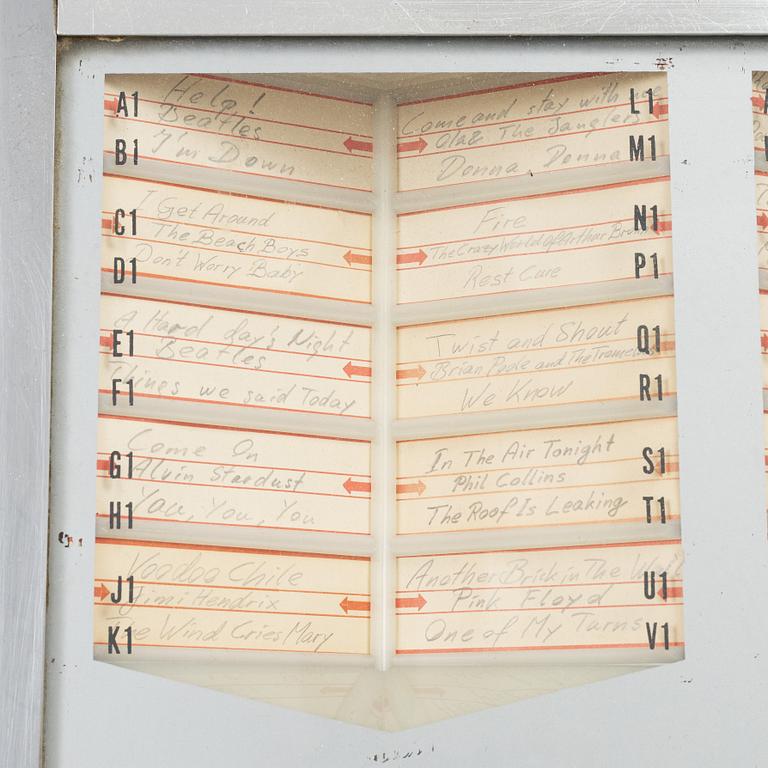 A1 Help!
Beatles
B1 I'm Down
C1 I Get Around
The Beach Boys
D1 Don't Worry Baby
E1 A Hard day's Night
Beatles
F1 Things we said Today
G1 Come On
Alvin Stardust
H1 You, You, You
J1 Voodoo Chile
Jimi Hendrix
K1 The Wind Cries Mary
Come and stay with me L1
Ola & The Janglers
Donna, Donna M1
Fire N1
The Crazy World of Arthur Brown
Rest Cure P1
Twist and Shout Q1
Brian Poole and The Tremeloes
We Know R1
In The Air Tonight S1
Phil Collins
The Roof Is Leaking T1
Another Brick in The Wall U1
Pink Floyd
One of My Turns V1